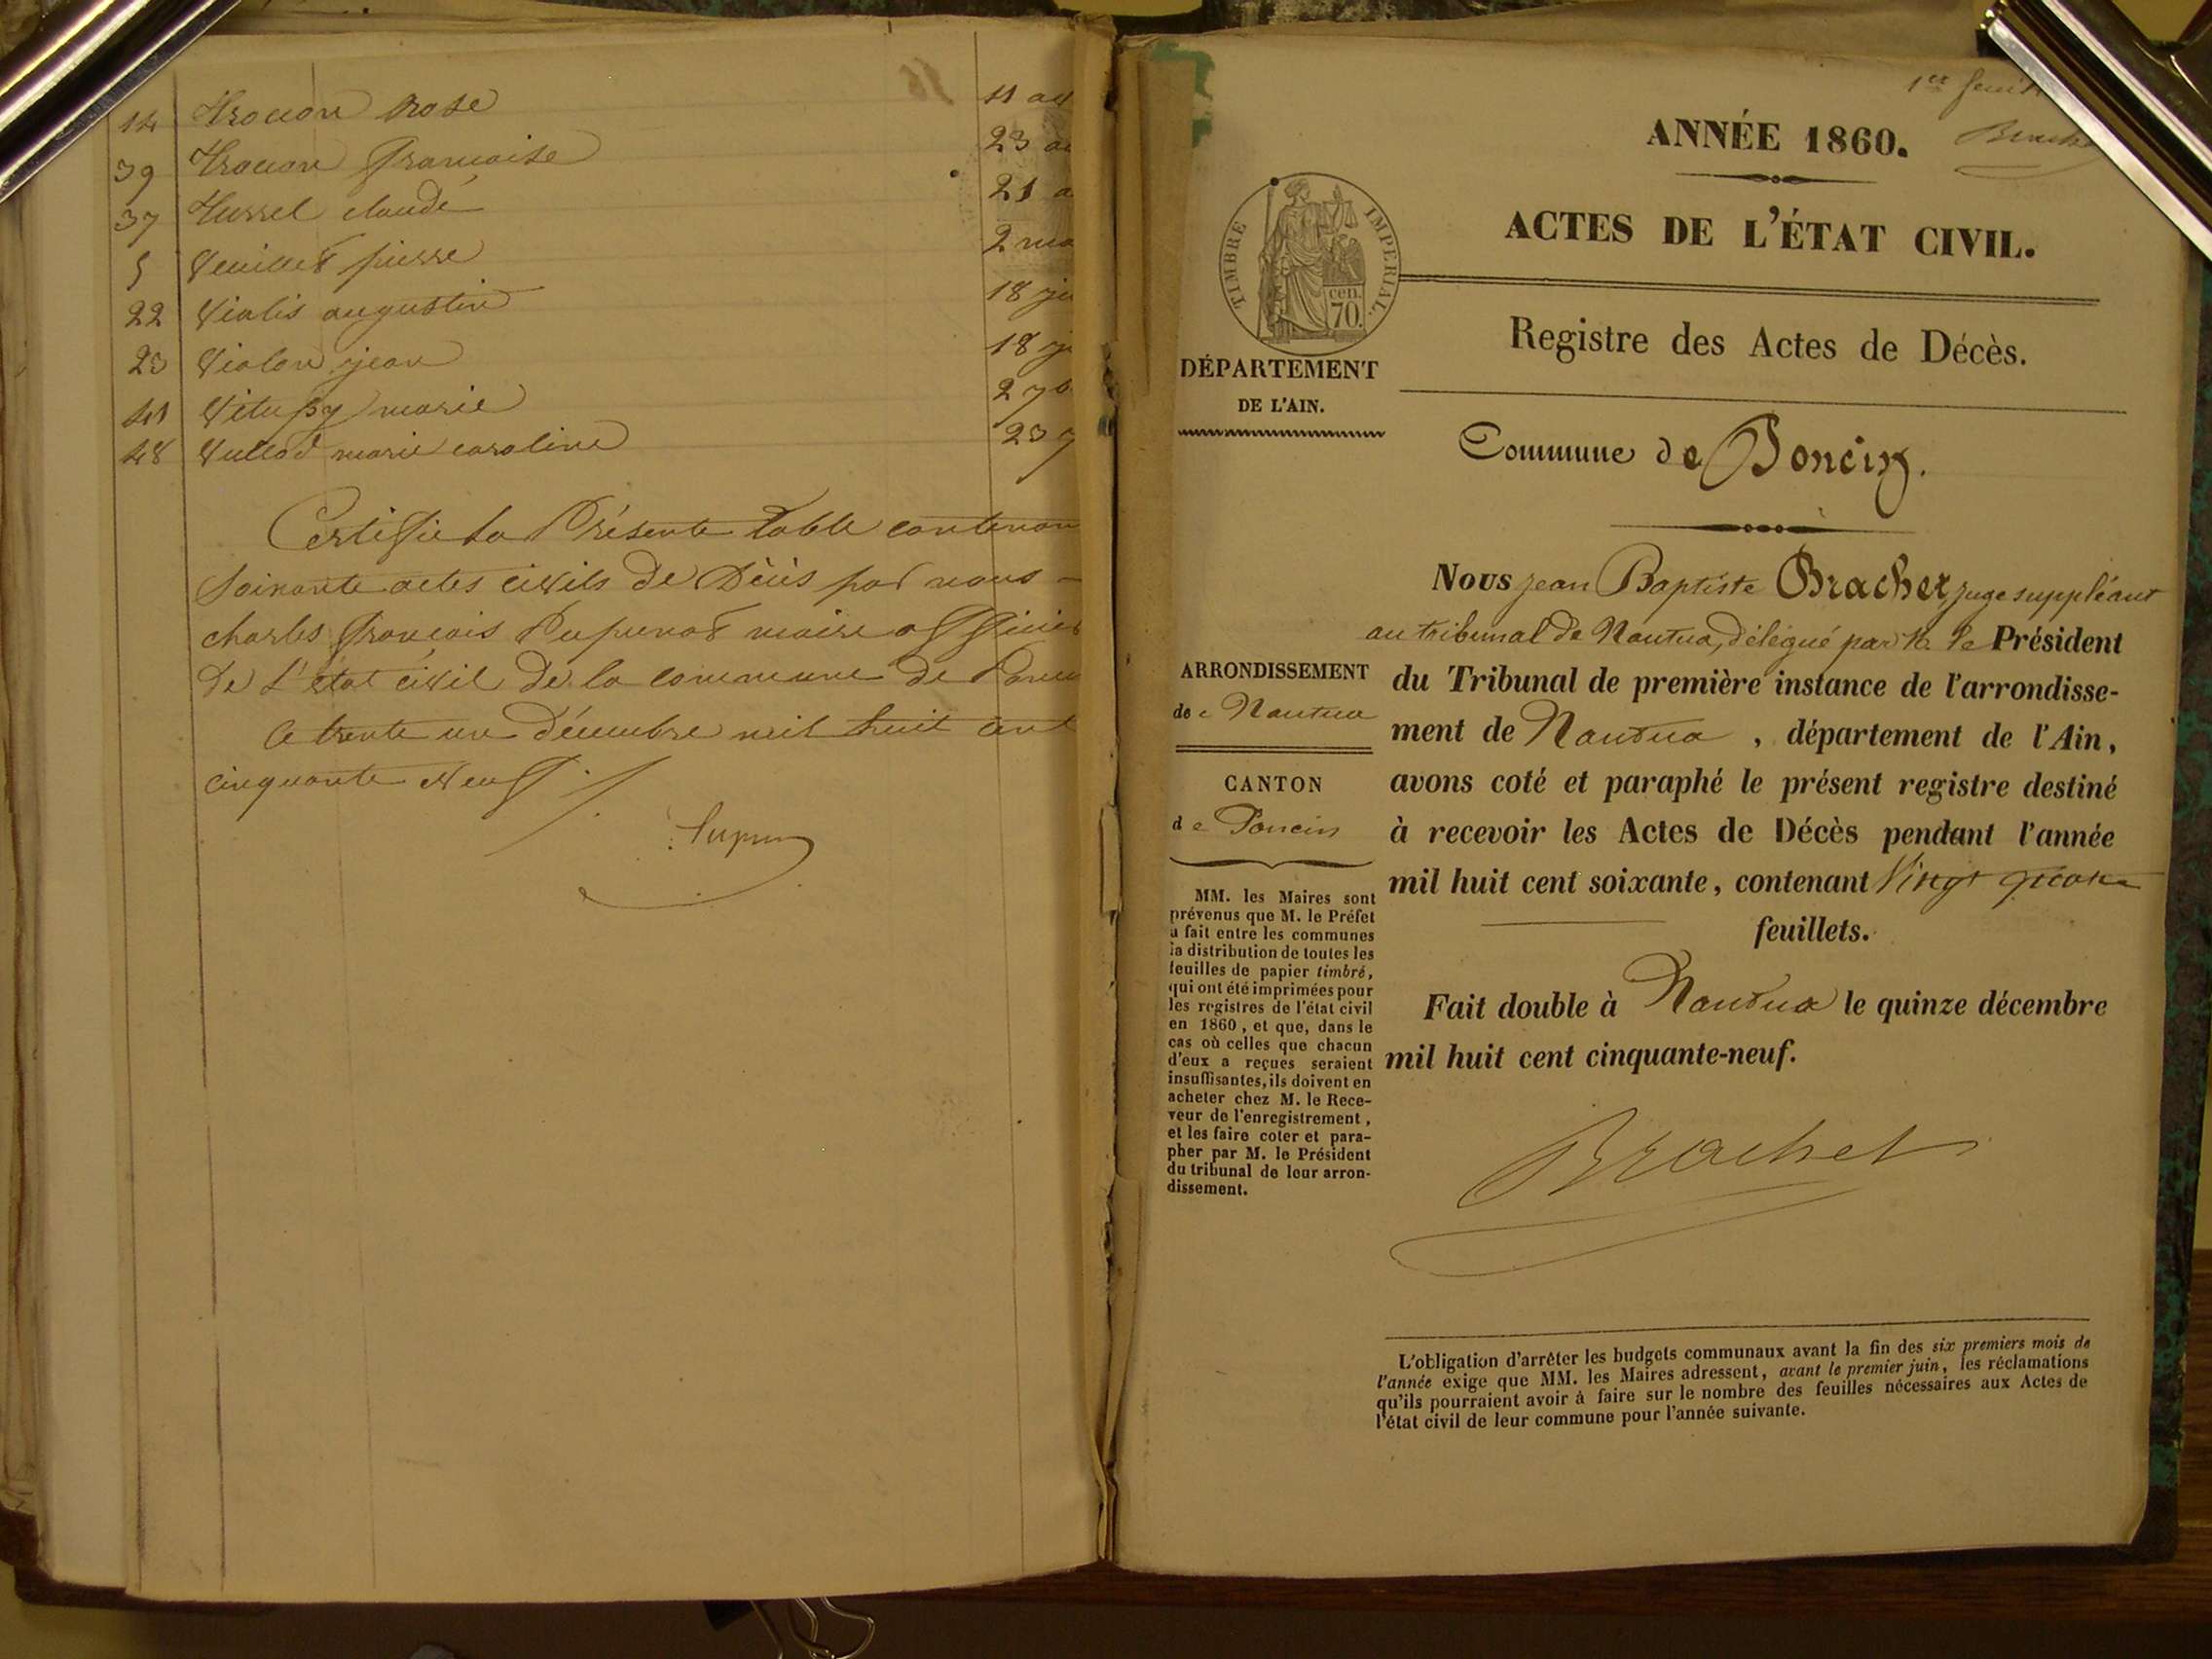 14 Trouon Rose 11
39 Trouon Françoise 23
37 Tussel claude 21
5 Veuillet pierre 2
22 Vialis augustin 18
23 Violon jean 18
41 marie 27
48 Vullod marie caroline 23
Certifié la Présente table
Soixante actes civils de Décès par nous
charles François Pupunat maire officier
De L'état civil de la commune de
Ce trente un Décembre mil huit cent
cinquante Neuf
1er
ANNÉE 1860.
ACTES DE L'ÉTAT CIVIL.
TIMBRE IMPÉRIAL.
70. cen.
Registre des Actes de Décès.
DÉPARTEMENT
DE L'AIN.
Commune de Poncin.
Nous jean Baptiste Brachet, juge suppléant
au tribunal de Nantua, délégué par M. le Président
du Tribunal de première instance de l'arrondisse-
ment de Nantua , département de l'Ain,
avons coté et paraphé le présent registre destiné
à recevoir les Actes de Décès pendant l'année
mil huit cent soixante, contenant Vingt quatre
feuillets.
Fait double à Nantua le quinze décembre
mil huit cent cinquante-neuf.
Brachet
ARRONDISSEMENT
de Nantua
CANTON
de Poncin
MM. les Maires sont
prévenus que M. le Préfet
a fait entre les communes
la distribution de toutes les
feuilles de papier timbré,
qui ont été imprimées pour
les registres de l'état civil
en 1860, et que, dans le
cas où celles que chacun
d'eux a reçues seraient
insuffisantes, ils doivent en
acheter chez M. le Rece-
veur de l'enregistrement,
et les faire coter et para-
pher par M. le Président
du tribunal de leur arron-
dissement.
L'obligation d'arrêter les budgets communaux avant la fin des six premiers mois de
l'année exige que MM. les Maires adressent, avant le premier juin, les réclamations
qu'ils pourraient avoir à faire sur le nombre des feuilles nécessaires aux Actes de
l'état civil de leur commune pour l'année suivante.